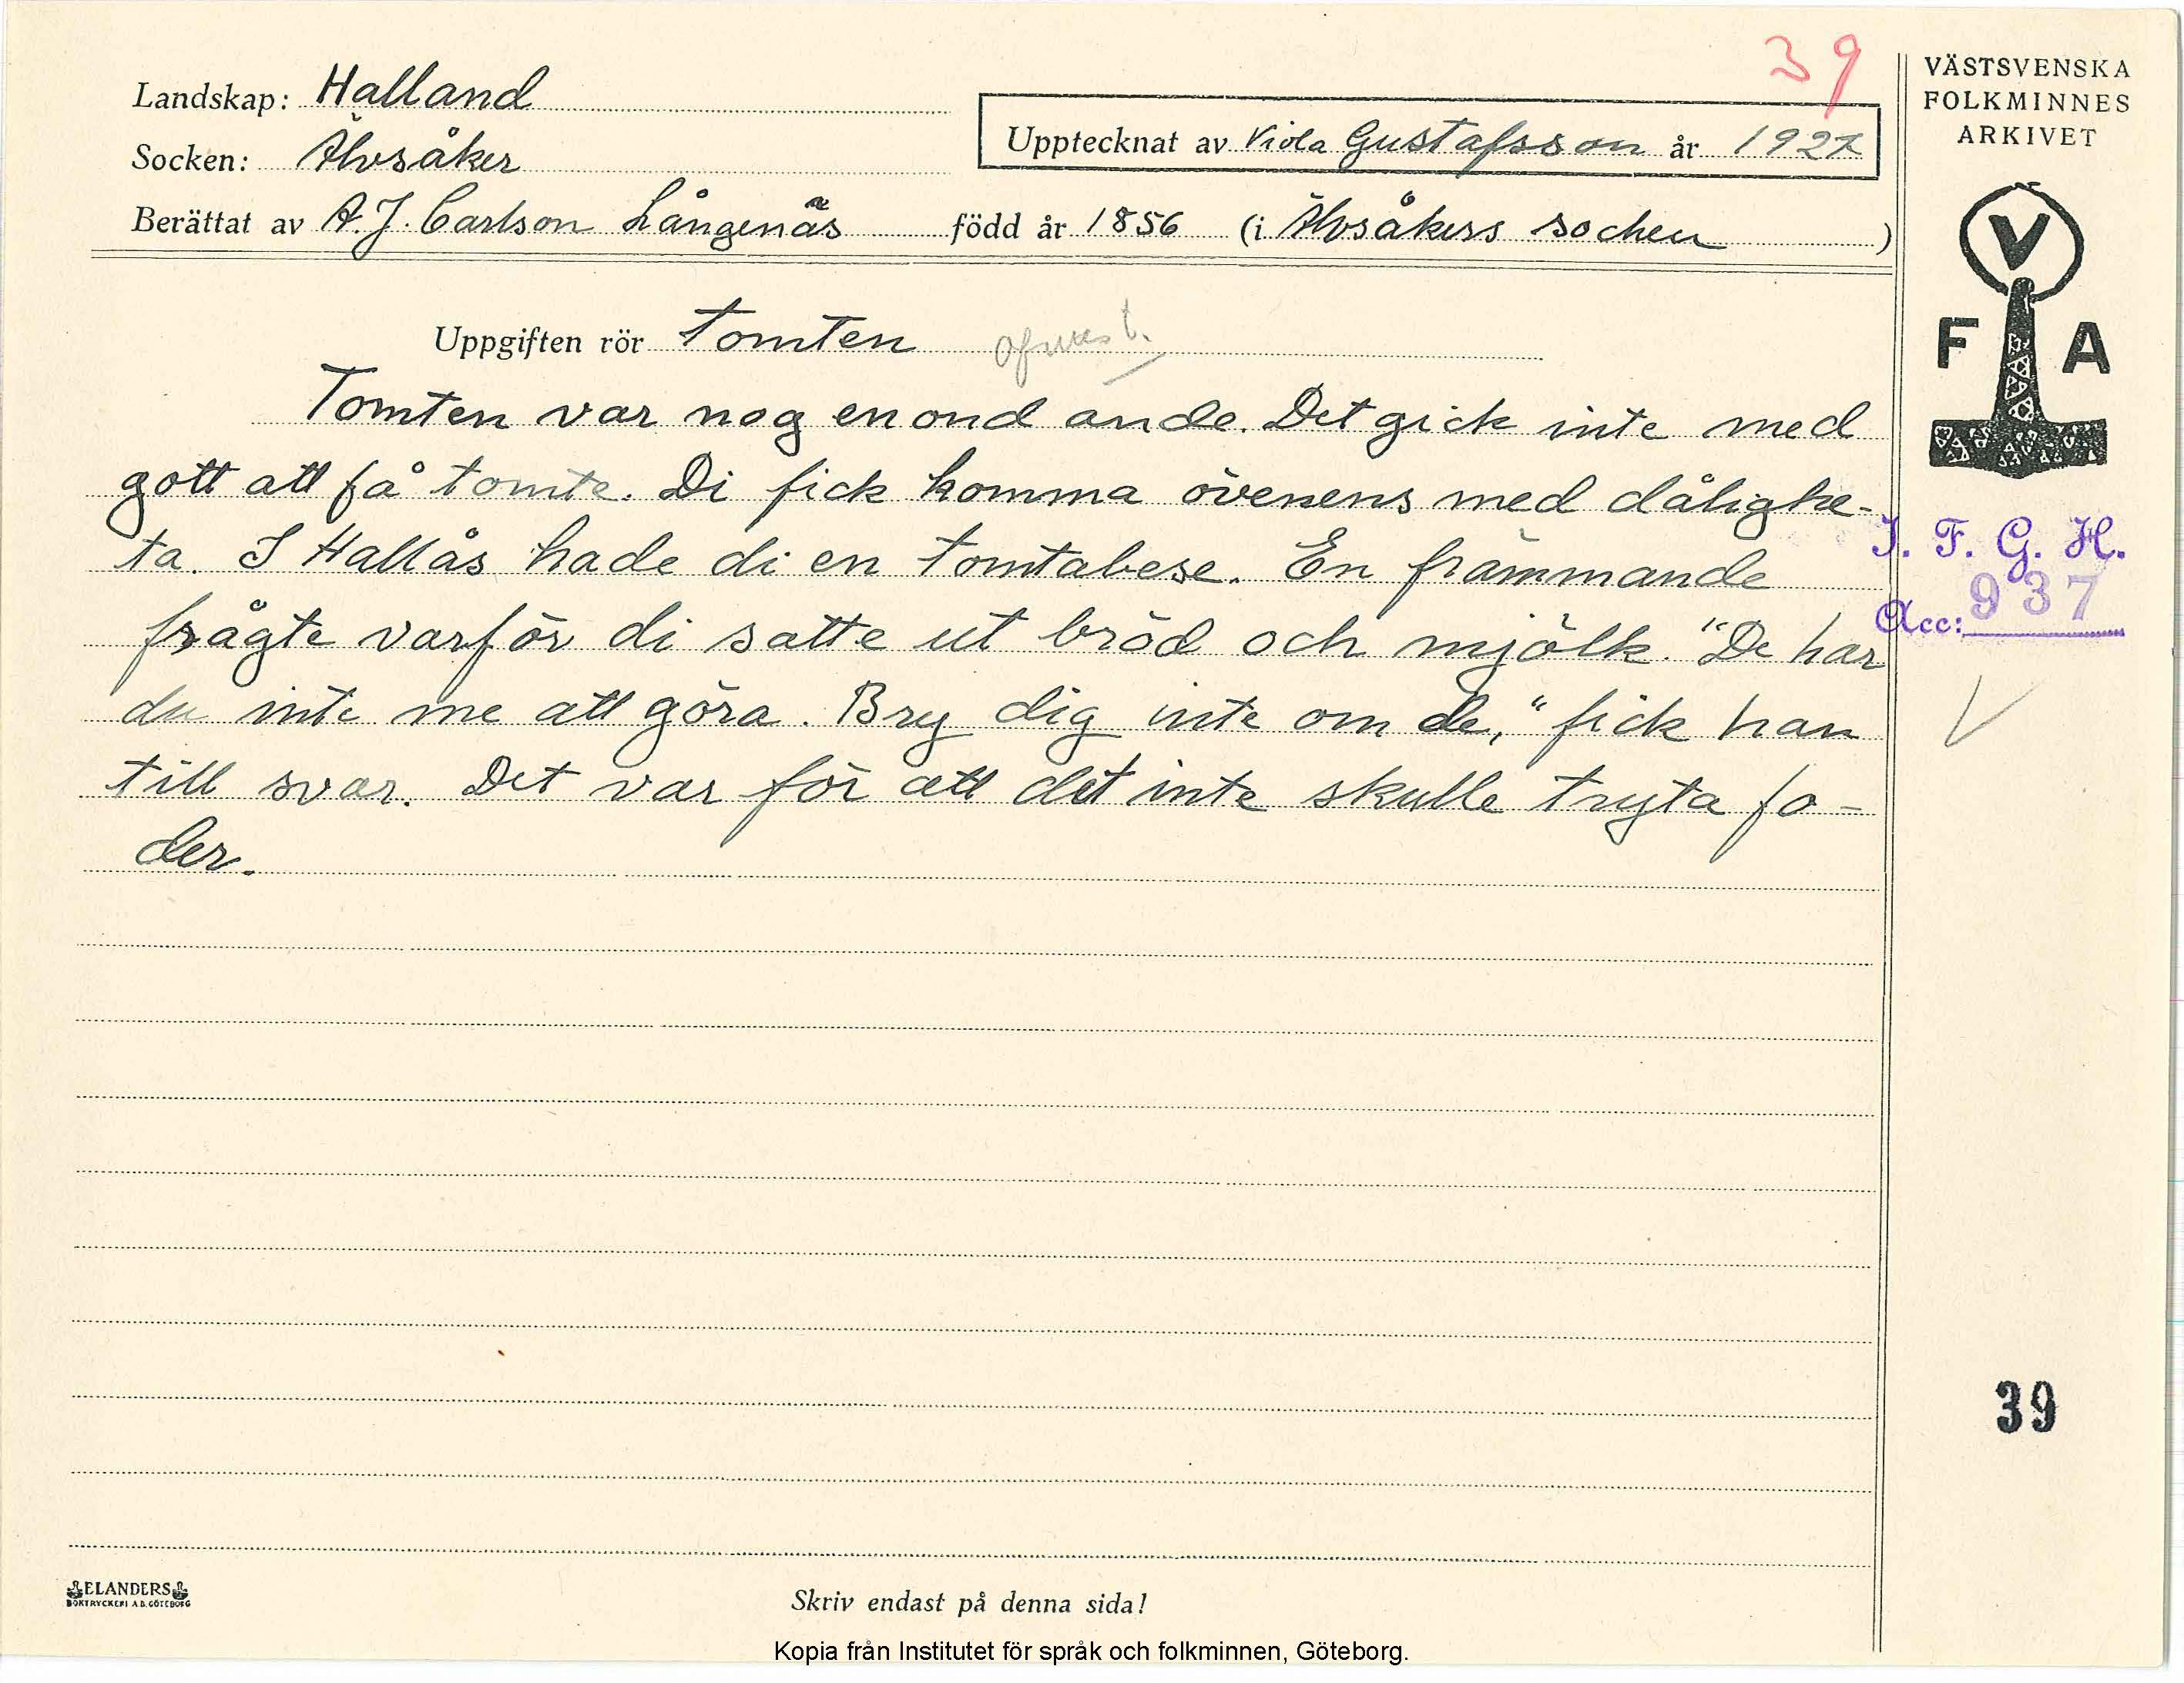 39
Landskap: Halland
Socken: Älvsåker
Upptecknat av Viola Gustafsson år 1927
Berättat av A.J. Carlson Långenäs född år 1856 (i Älvsåkers socken)
Uppgiften rör Tomten
Tomten var nog en ond ande. Det gick inte med
gott att få tomte. Di fick komma övenens med dålighe-
ta. I Hallås hade di en tomtabese. En främmande
frågte varför di satte ut bröd och mjölk. "De har
du inte me att göra. Bry dig inte om de," fick han
till svar. Det var för att det inte skulle tryta fo-
der.
VÄSTSVENSKA
FOLKMINNES
ARKIVET
V
F A
I. F. G. H.
Acc: 937
39
ELANDERS
BOKTRYCKERI A.B. GÖTEBORG
Skriv endast på denna sida!
Kopia från Institutet för språk och folkminnen, Göteborg.